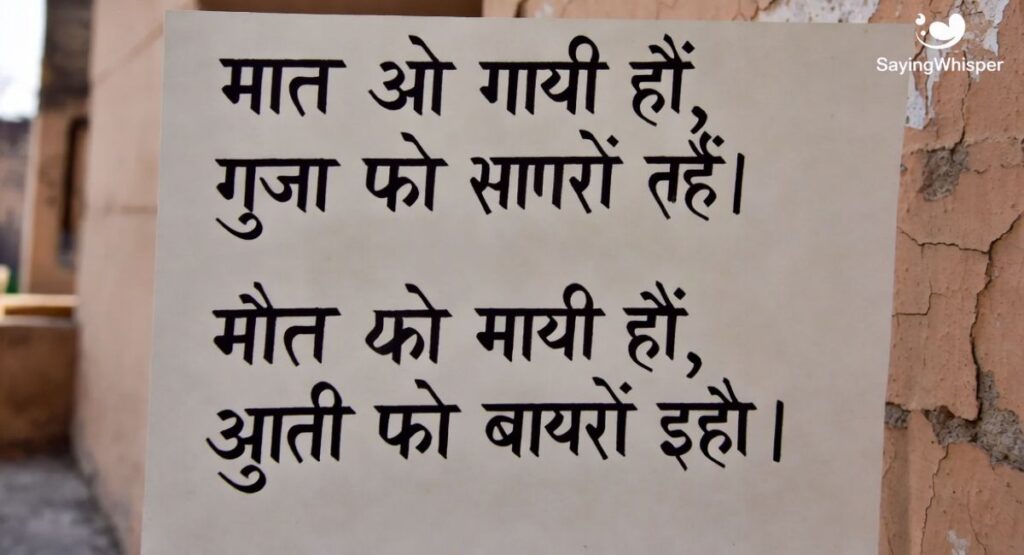 SayingWhisper
मात ओ गायी हौं,
गुजा फो सागरों तहैं।
मौत को मायी हौं,
आुती फो बायरों इहौ।